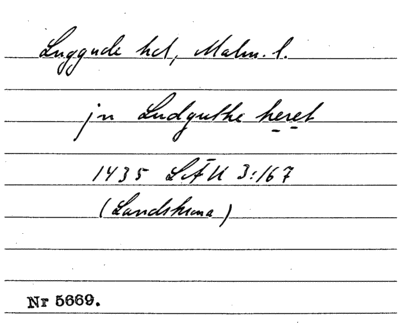 Luggude hd, Malm. l.
jn Ludguthe heret
1435 LÄU 3:167
(Landskrona)
Nr 5669.